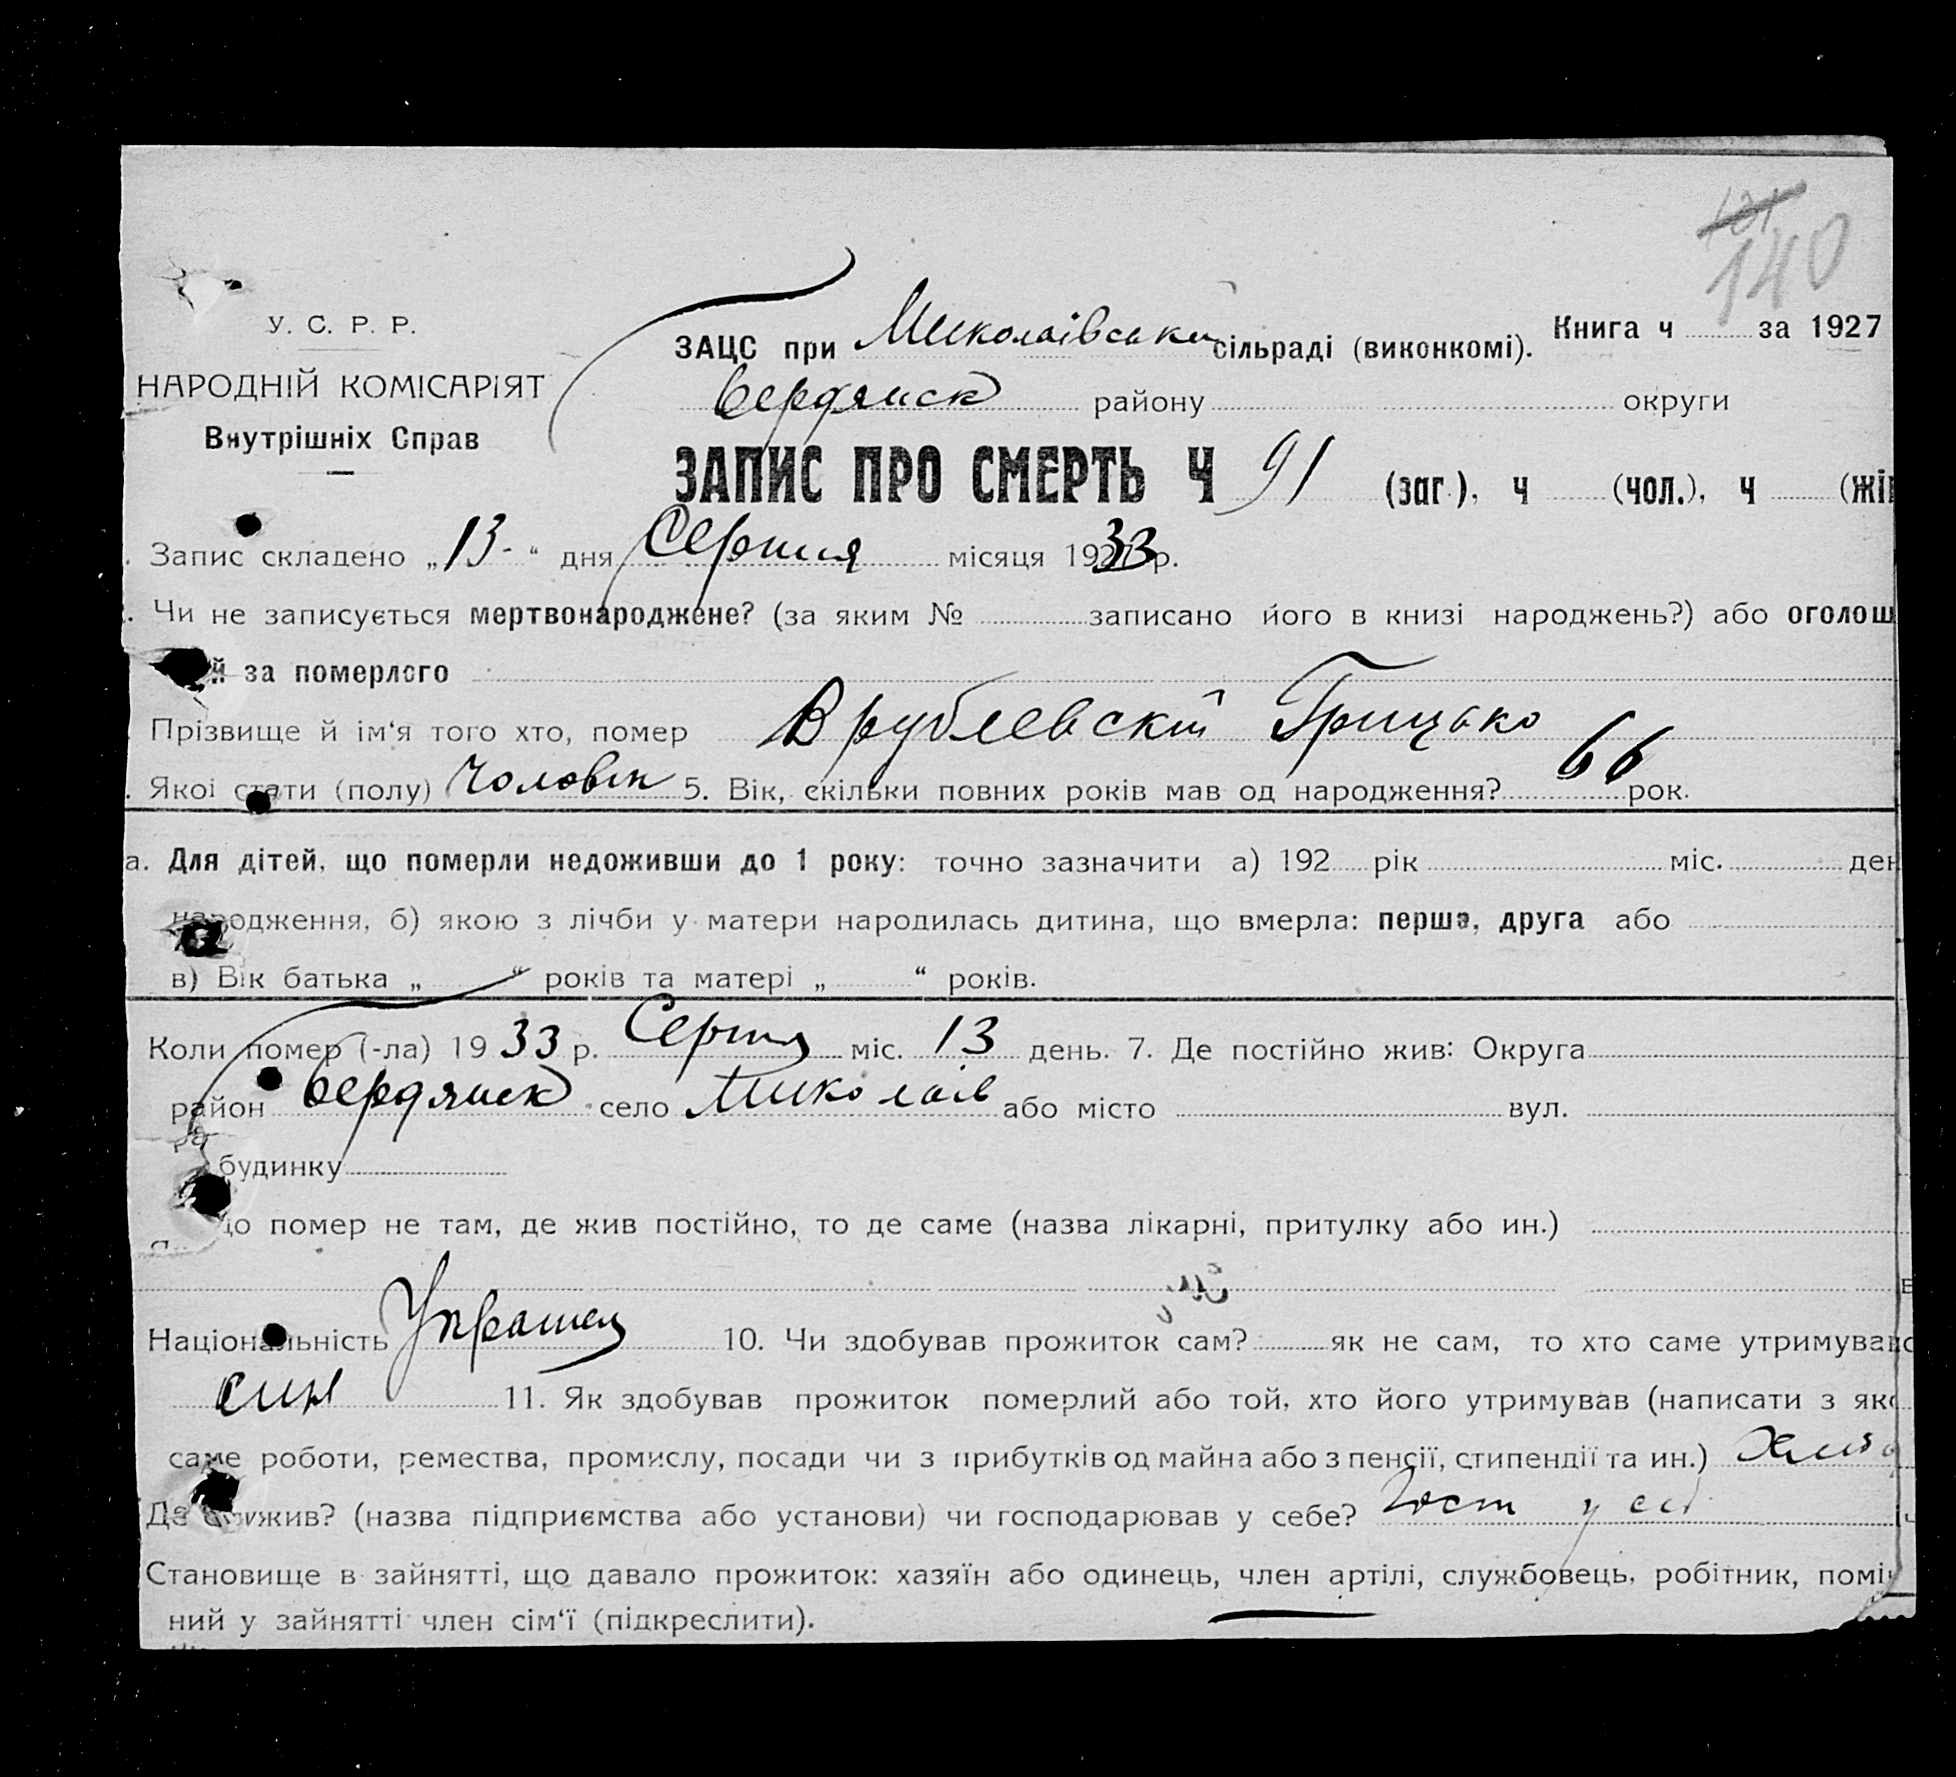 140
У. С. Р. Р.
НАРОДНІЙ КОМІСАРІЯТ
Внутрішніх Справ
ЗАЦС при Миколаївській сільраді (виконкомі). Книга ч за 1927
Бердянск району округи
ЗАПИС ПРО СМЕРТЬ Ч 91 (заг.), ч (чол.), ч (жін
Запис складено „13“ дня Серпня місяця 1933 р.
Чи не записується мертвонароджене? (за яким № записано його в книзі народжень?) або оголош
й за померлого
Прізвище й ім‘я того хто, помер Врублевскій Грицько
Якої стати (полу) Чоловік 5. Вік, скільки повних років мав од народження? 66 рок.
а. Для дітей, що померли недоживши до 1 року: точно зазначити а) 192 рік міс. ден
народження, б) якою з лічби у матери народилась дитина, що вмерла: перша, друга або
в) Вік батька „ “ років та матері „ “ років.
Коли помер (-ла) 1933 р. Серпня міс. 13 день. 7. Де постійно жив: Округа
район Бердянск село Миколаїв або місто вул.
будинку
що помер не там, де жив постійно, то де саме (назва лікарні, притулку або ин.)
Національність 10. Чи здобував прожиток сам? як не сам, то хто саме утримував
син 11. Як здобував прожиток померлий або той, хто його утримував (написати з яко
саме роботи, ремества, промислу, посади чи з прибутків од майна або з пенсії, стипендії та ин.)
Де служив? (назва підприємства або установи) чи господарював у себе? Гост у себ
Становище в зайнятті, що давало прожиток: хазяїн або одинець, член артілі, службовець, робітник, поміч
ний у зайнятті член сім‘ї (підкреслити).